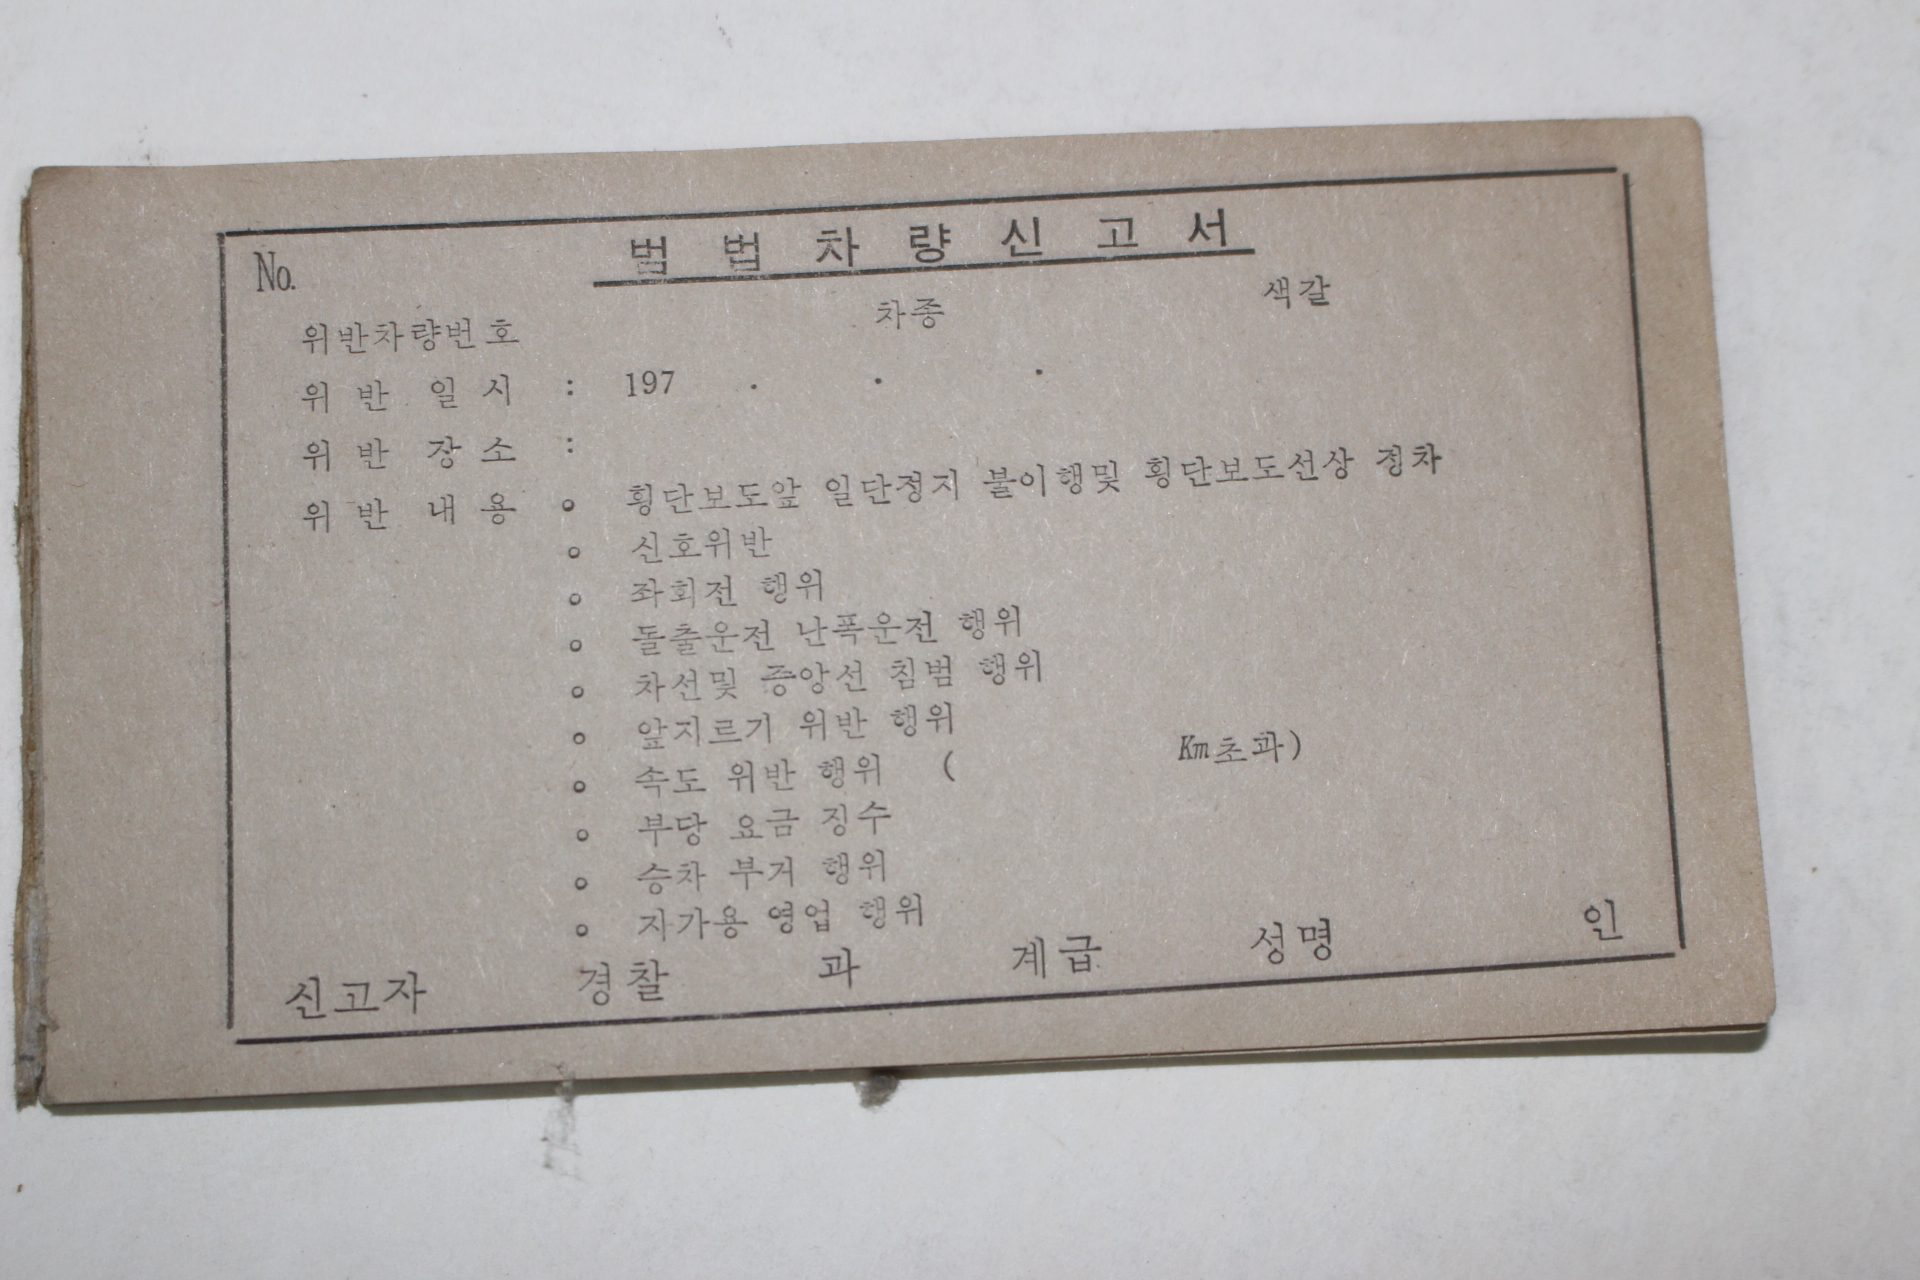 No.
범법차량신고서
위반차량번호 차종 색갈
위반 일시 : 197 . . .
위반 장소 :
위반 내용 ∘ 횡단보도앞 일단정지 불이행및 횡단보도선상 정차
∘ 신호위반
∘ 좌회전 행위
∘ 돌출운전 난폭운전 행위
∘ 차선및 중앙선 침범 행위
∘ 앞지르기 위반 행위
∘ 속도 위반 행위 ( Km초과)
∘ 부당 요금 징수
∘ 승차 부거 행위
∘ 자가용 영업 행위
신고자 경찰 과 계급 성명 인